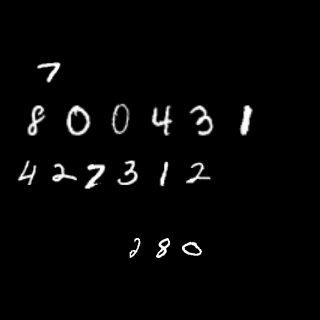 7
800431
427312
280